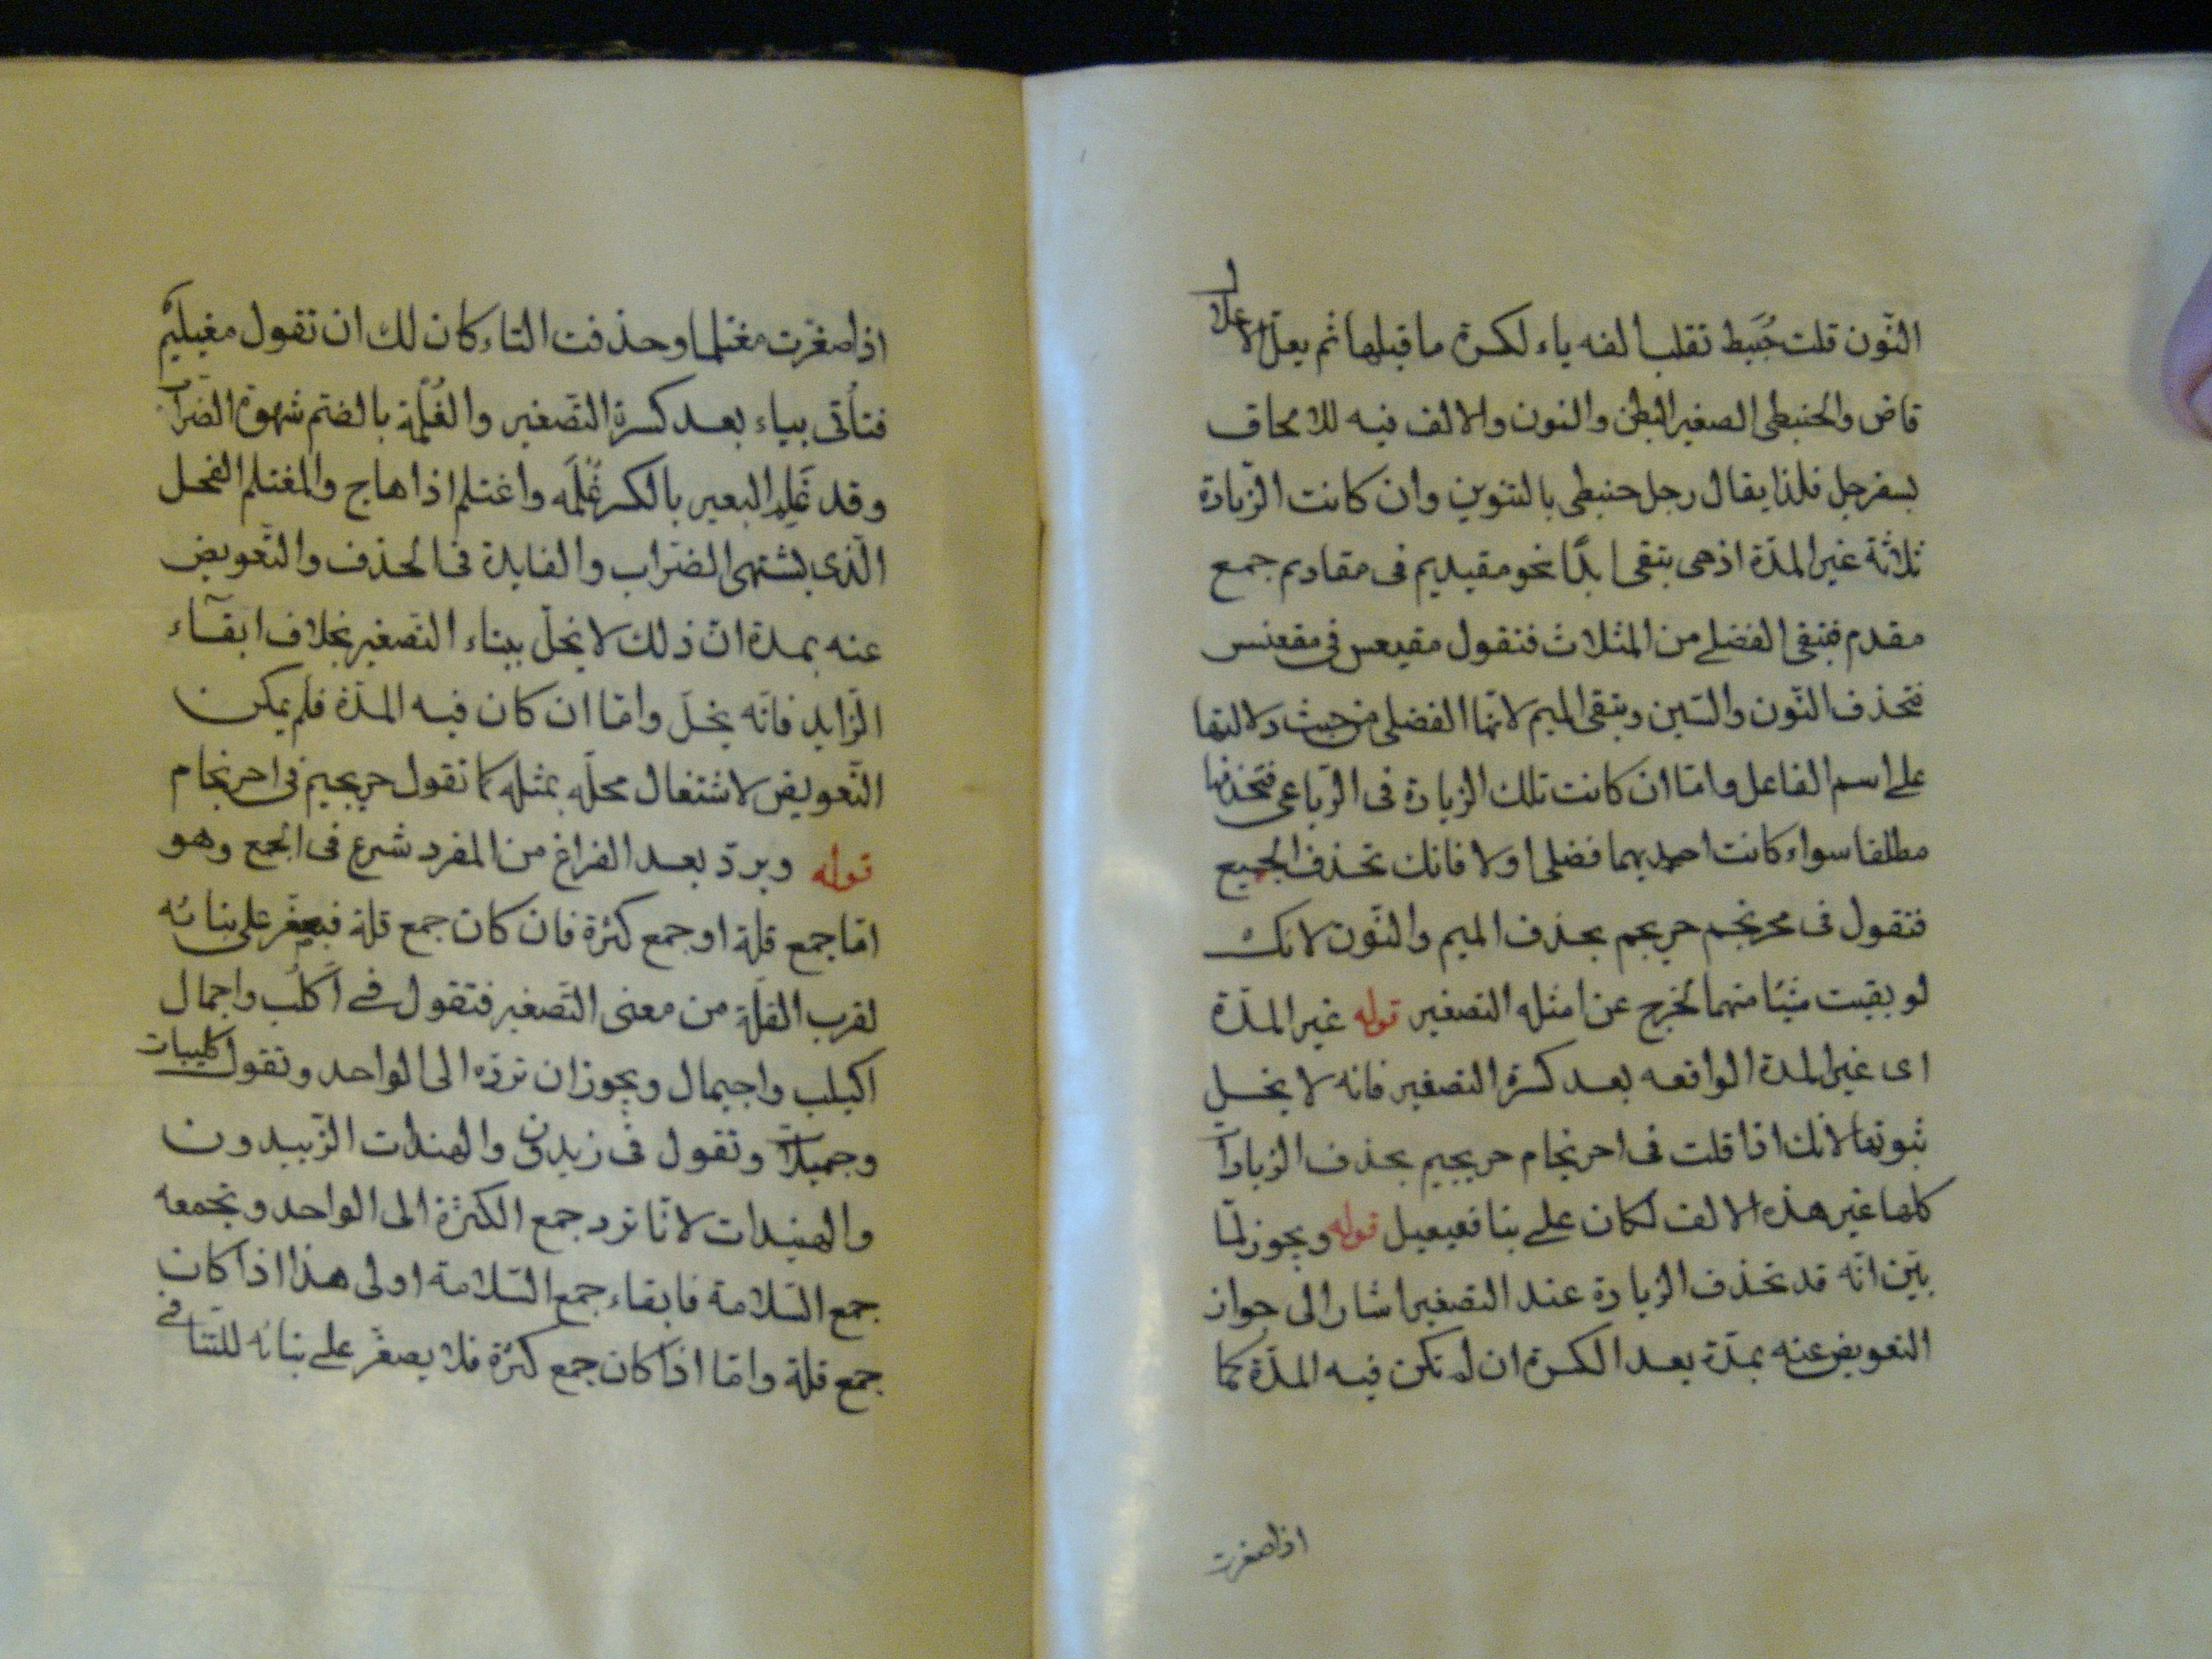 النّون قلت حُبَيط تقلب الفه ياء لكسرة ما قبلها ثم يعلّ اعلال
قاض والحنبطى الصغير البطن والنون والالف فيه للالحاق
بسفرجل فلذا يقال رجل حنبطى بالتنوين وان كانت الزّيادة
ثلاثة غير المدّة اذ هى بتقى ابدًا نحو مقيديم فى مقاديم جمع
مقدم فبتقى الفضلى من المثلاث فتقول مقيعس فى مقعنسس
فتحذف النّون والسّين وبتقى الميم لانّها الفضلى من حيث دلالتها
على اسم الفاعل وامّا ان كانت تلك الزيادة فى الرّباعى فتحذفها
مطلقا سواء كانت احديهما فضلى اولا فانك تحذف الجميع
فتقول فى محرنجم حريجم بحذف الميم والنّون لانك
لو بقيت شيئا منهما لخرج عن امثله التصغير قوله غير المدّة
اى غير المدة الواقعه بعد كسرة التصغير فانه لا يخل
ثبوتها لانك اذا قلت فى احرنجام حريجيم بحذف الزيادات
كلها غير هذه الالف لكان على بنا فعيعيل قوله ويجوز لمّا
بيّن انّه قد تحذف الزيادة عند التصغير اشار الى جواز
التعويض عنه بمدّة بعد الكسرة ان لم تكن فيه المدّة كما
اذا صغرت
اذا صغّرت مغتلما وحذفت التاء كان لك ان تقول مغيليم
فتأتى بياء بعد كسرة التّصغير والغُلّمة بالضّم شهوة الضّراب
وقد غَلِم البعير بالكسر غُلمَه واغتلم اذا هاج والمغتلم الفحل
الّذى يشتهى الضّراب والفايدة فى الحذف والتّعويض
عنه بمدة انّ ذلك لا يخلّ ببناء التّصغير بخلاف ابقآء
الزّايد فانّه يخلّ وامّا ان كان فيه المدّة فلم يمكن
التّعويض لاشتغال محلّه بمثله كما تقول حريجيم فى احرنجام
قوله ويردّ بعد الفراغ من المفرد شرع فى الجمع وهو
امّا جمع قلة او جمع كثرة فان كان جمع قلة فيصغّر على بنائه
لقرب القلّة من معنى التّصغير فتقول فى اَكلُب واجمال
اكيلب واجيمال ويجوز ان تردّه الى الواحد وتقول كليبات
وجميلات وتقول فى زيدون والهندات الزّييدون
والهنيدات لانّا نرد جمع الكثرة الى الواحد ونجمعه
جمع السّلامة فابقاء جمع السّلامة اولى هذا اذا كان
جمع قلة وامّا اذا كان جمع كثرة فلا يصغّر على بنائه للتّنافى